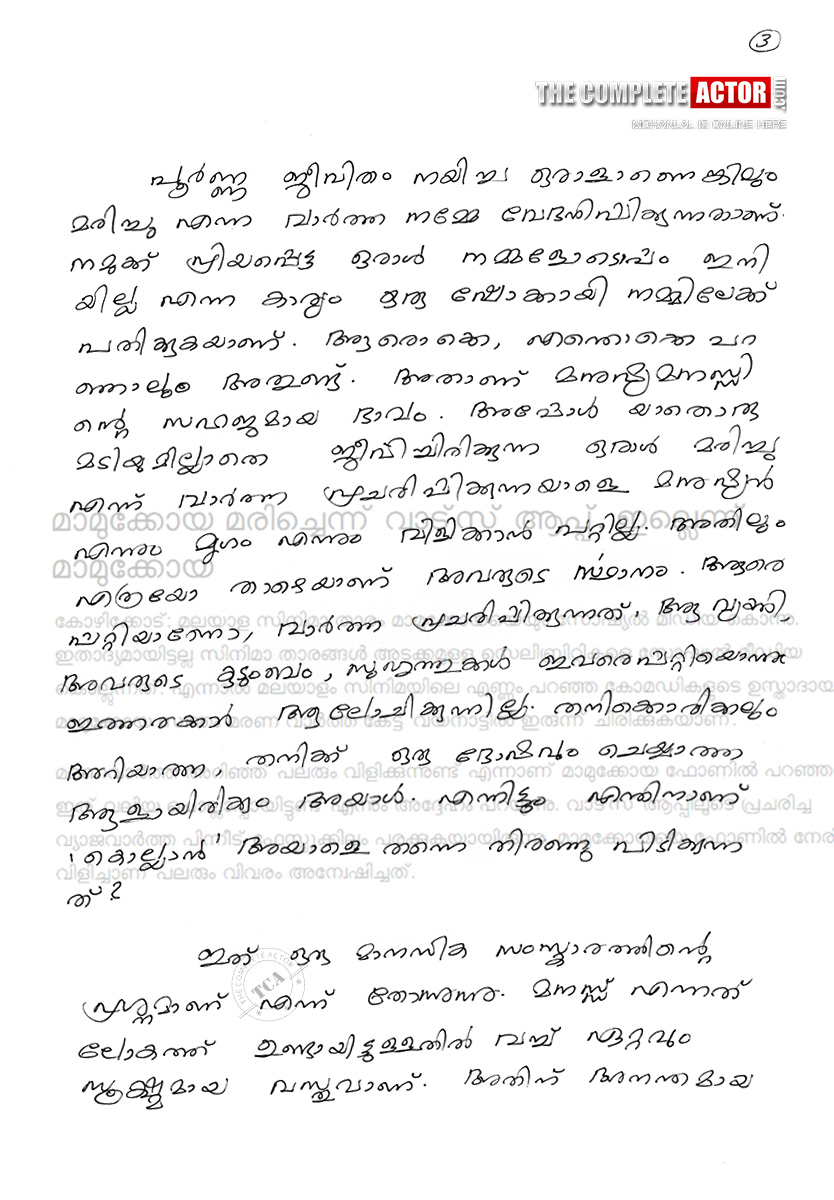 3
THE COMPLETE ACTOR .com
MOHANLAL IS ONLINE HERE
പൂർണ്ണ ജീവിതം നയിച്ച ഒരാളാണെങ്കിലും
മരിച്ചു എന്ന വാർത്ത നമ്മേ വേദനിപ്പിക്കുന്നതാണ്.
നമുക്ക് പ്രിയപ്പെട്ട ഒരാൾ നമ്മളോടൊപ്പം ഇനി
യില്ല എന്ന കാര്യം ഒരു ഷോക്കായി നമ്മിലേക്ക്
പതിക്കുകയാണ്. ആരൊക്കെ, എന്തൊക്കെ പറ
ഞ്ഞാലും അതുണ്ട്. അതാണ് മനുഷ്യമനസ്സി
ന്റെ സഹജമായ ഭാവം. അപ്പോൾ യാതൊരു
മടിയുമില്ലാതെ ജീവിച്ചിരിക്കുന്ന ഒരാൾ മരിച്ചു
എന്ന് വാർത്ത പ്രചരിപ്പിക്കുന്നയാളെ മനുഷ്യൻ
മാമുക്കോയ മരിച്ചെന്ന് വാട്സ് ആപ്പ് ഇല്ലെന്ന്
എന്നും മൃഗം എന്നും വിളിക്കാൻ പറ്റില്ല. അതിലും
മാമുക്കോയ
എത്രയോ താഴെയാണ് അവരുടെ സ്ഥാനം. ആരെ
കോഴിക്കോട്: മലയാള സിനിമാതാരം
പറ്റിയാണോ, വാർത്ത പ്രചരിപ്പിക്കുന്നത്, ആ വ്യക്തി,
ഇതാദ്യമായിട്ടല്ല സിനിമാ താരങ്ങൾ അടക്കമുള്ള
അവരുടെ കുടുംബം, സുഹൃത്തുക്കൾ ഇവരെപ്പറ്റിയൊന്നും
എന്നാൽ മലയാളം സിനിമയിലെ എണ്ണം പറഞ്ഞ കോമഡികളുടെ ഉസ്താദായ
ഇത്തരക്കാർ ആലോചിക്കുന്നില്ല. തനിക്കൊരിക്കലും
മരണ വാർത്ത കേട്ട് വയനാട്ടിൽ ഇരുന്ന് ചിരിക്കുകയാണ്.
അറിയാത്ത, തനിക്ക് ഒരു ദ്രോഹവും ചെയ്യാത്ത
പലരും വിളിക്കുന്നുണ്ട് എന്നാണ് മാമുക്കോയ ഫോണിൽ പറഞ്ഞ
ആളായിരിക്കും അയാൾ. എന്നിട്ടും എന്തിനാണ്
വാട്സ് ആപ്പിലൂടെ പ്രചരിച്ച
വ്യാജവാർത്ത പിന്നീട് ഫേസ്ബുക്കിലും പരക്കുകയായിരുന്നു. ഫോണിൽ നേരി
'കൊല്ലാൻ' അയാളെ തന്നെ തിരഞ്ഞു പിടിക്കുന്ന
വിളിച്ചാണ് പലരും വിവരം അന്വേഷിച്ചത്.
ത്?
ഇത് ഒരു മാനസിക സംസ്കാരത്തിന്റെ
THE COMPLETE ACTOR
TCA
പ്രശ്നമാണ് എന്ന് തോന്നുന്നു. മനസ്സ് എന്നത്
ലോകത്ത് ഉണ്ടായിട്ടുള്ളതിൽ വച്ച് ഏറ്റവും
സൂക്ഷ്മമായ വസ്തുവാണ്. അതിന് അനന്തമായ